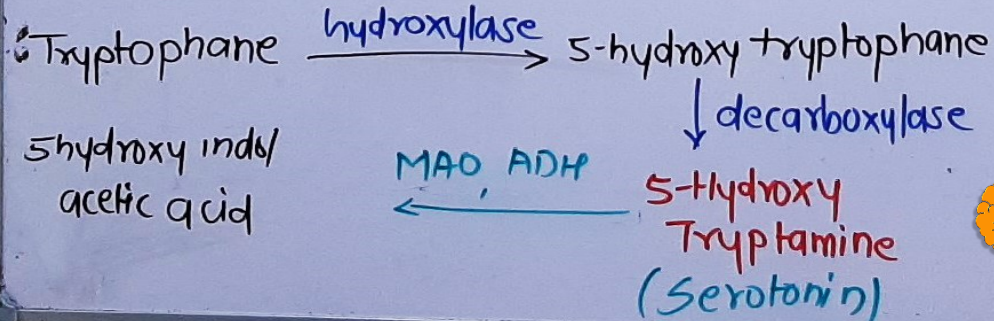 Tryptophane hydroxylase 5-hydroxy tryptophane
decarboxylase
5hydroxy indol
acetic acid
MAO, ADH
5-Hydroxy
Tryptamine
(Serotonin)